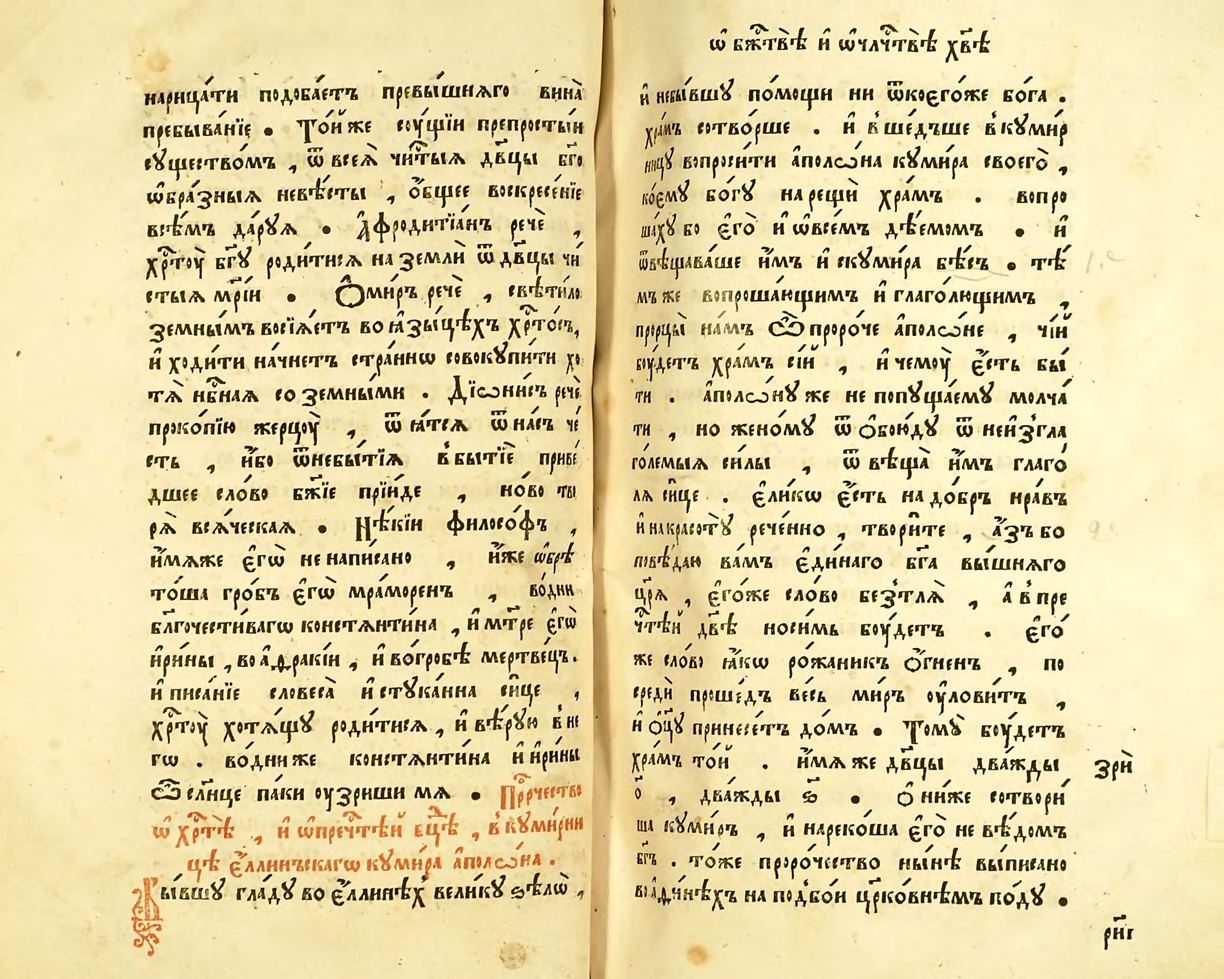 нарица́ти подоба́етъ превы́шнѧго вина̀
пребыва́нїе . То́й же со́ущїи препросты́и
сꙋщество́мъ , ѿ всеѧ̀ чи́тыѧ дв҃цы бг҃о
ѡбра́зныѧ неве́сты , о҆́бщее воскресе́нїе
всѣ́мъ да́рꙋѧ . А҆фродитїа́нъ речѐ ,
хрⷭ҇тоу̀ бг҃ꙋ роди́тисѧ на землѝ ѿ дв҃цы чи
стыѧ мр҃їи . О҆ми́ръ речѐ , свѣти́ло
земны́мъ восїѧ́етъ во ꙗ҆зы́цѣхъ хрⷭ҇то́съ,
и҆ ходи́ти на́чнетъ стра́ннѡ совокꙋпи́ти хо
тѧ̀ нбⷭ҇наѧ со земны́ми . Дїѡни́съ речѐ
проко́пїю жерцоу̀ , ѿ ꙗ҆́тсѧ ѿ на́съ че́
сть , и҆́бо ѿ небытїѧ̀ в бытїѐ приве́
дшее сло́во бж҃їе прїи́де , но́во тво
рѧ̀ всѧ́ческаѧ . Нѣ́кїи филосо́фъ ,
и҆́мѧже є҆гѡ̀ не напи́сано , и҆́же ѡбрѣ
то́ша гро́бъ є҆гѡ̀ мра́моренъ , во́дни
бл҃гочести́вагѡ констѧнти́на , и҆ мт҃ре є҆гѡ̀
и҆ри́ны , во а҆фра́кїи , и҆ во гро́бѣ мертве́цъ.
и҆ писа́нїе словеса̀ и҆стꙋка́нна си́це ,
хрⷭ҇тоу̀ хотѧ́щꙋ роди́тисѧ , и҆ вѣ́рꙋю в не
гѡ . во́дни же констѧнти́на и҆ и҆ри́ны
Ѽ сл҃нце па́ки оузриши мѧ . Прⷪ҇ро́чество
ѡ҆ хрⷭ҇тѣ̀ , и҆ ѡ҆ пречⷭ҇тѣй бц҃ѣ , в кꙋми́рни
цѣ є҆́ллинъскагѡ кꙋми́ра а҆полѡ́на .
Бы́вшꙋ гла́дꙋ во є҆́ллинѣхъ вели́кꙋ ѕѣлѡ̀ ,
ѡ҆ бжⷭ҇твѣ̀ и҆ ѡ҆ члчⷭ҇твѣ̀ хв҃ѣ
и҆ не бы́вшꙋ по́мощи ни ѿ коєго́же бо́га .
хра́мъ сотво́рше . и҆ в ше́дъше в кꙋми́р
ницꙋ вопроси́ти а҆полѡ́на кꙋми́ра своего̀ ,
ко́емꙋ бо́гꙋ нарещѝ хра́мъ . вопро
ша́хꙋ бо є҆го̀ и҆ ѡ҆ всѣ́мъ дѣ́емомъ . и҆
ѿвѣщава́ше и҆́мъ и҆с кꙋми́ра бѣ́съ . тѣ́
мъ же вопроша́ющимъ и҆ глаго́лющимъ ,
прорцы̀ на́мъ Ѽ проро́че а҆полѡ́не , чі́й
бо́удетъ хра́мъ сі́й , и҆ чемоу̀ є҆́сть бы́
ти . а҆полѡ́нꙋ же не попꙋща́емꙋ молча́
ти , но жено́мꙋ ѿ о҆бою́дꙋ ѿ неи҆згла
го́лемыѧ си́лы , ѿ вѣща̀ и҆́мъ глаго́
лѧ си́це . є҆ли́кѡ є҆́сть на до́бръ нра́въ
и҆ на красотꙋ̀ рече́нно , твори́те , а҆́зъ бо
повѣ́даю ва́мъ є҆ди́наго бг҃а вы́шнѧго
цр҃ѧ , є҆го́же сло́во безтлѧ̀ , а҆ в пре
чⷭ҇тѣй дв҃ѣ носи́мь бо́удетъ . є҆го́
же сло́во ꙗ҆́кѡ ро́жаникъ о҆́гненъ , по
средѝ проше́дъ ве́сь ми́ръ оу҆лови́тъ ,
и҆ о҆ц҃ꙋ принесе́тъ до́мъ . Томꙋ̀ бо́удетъ
хра́мъ то́й . и҆́мѧ же дв҃цы два́жды зри̇̀
о҃ , два́жды ѕ҃ . о҆ни́же сотвори́
ша кꙋми́ръ , и҆ нареко́ша є҆го̀ не вѣ́домъ
бг҃ъ . то́же проро́чество ны́нѣ вы́писано
во а҆ди́нѣхъ на подво́и цр҃ко́внѣмъ по́дꙋ .